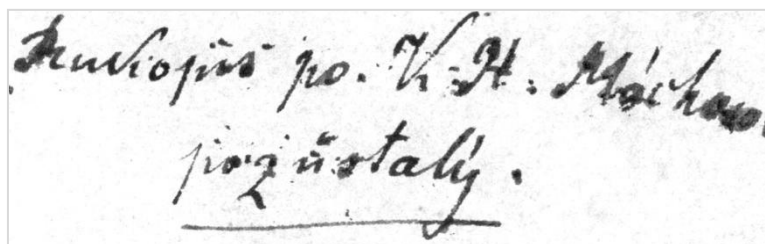 Rukopis po. K. H. Máchovi
pozůstalý.